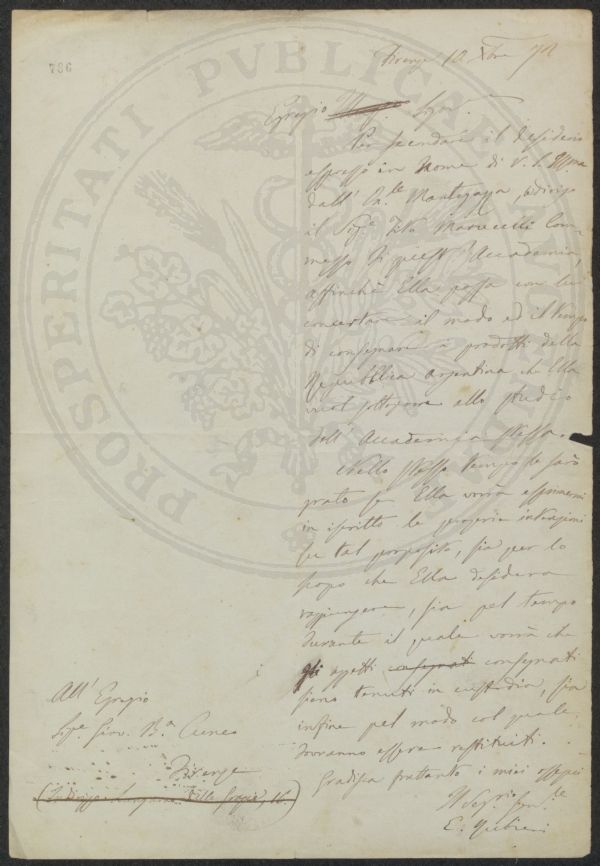 786
PROSPERITATI PVBLICAE
Firenze 10 Xbre 72
Egregio Sigre
Per secondare il desiderio
espresso in nome di V. S. Illma
dall' On.le Mantegazza, indirizzo
il Sigr Tito Marucelli Com-
messo di quest' Accademia,
affinchè Ella possa con lui
concertare il modo ed il tempo
di consegnare i prodotti della
Repubblica Argentina che Ella
vuol sottoporre allo studio
dell' Accademia stessa.
Nello stesso tempo le sarò
grato se Ella vorrà esprimermi
in iscritto le proprie intenzioni
su tal proposito, sia per lo
scopo che Ella desidera
raggiungere, sia pel tempo
durante il quale vorrà che
gli oggetti consegnati consegnati
siano tenuti in custodia, sia
infine pel modo col quale
dovranno essere restituiti.
Gradisca frattanto i miei ossequi
Il Segrio
E.
All' Egregio
Sigre Giov. Ba Cuneo
Firenze
(Indirizzo Lungarno Villa 16.)